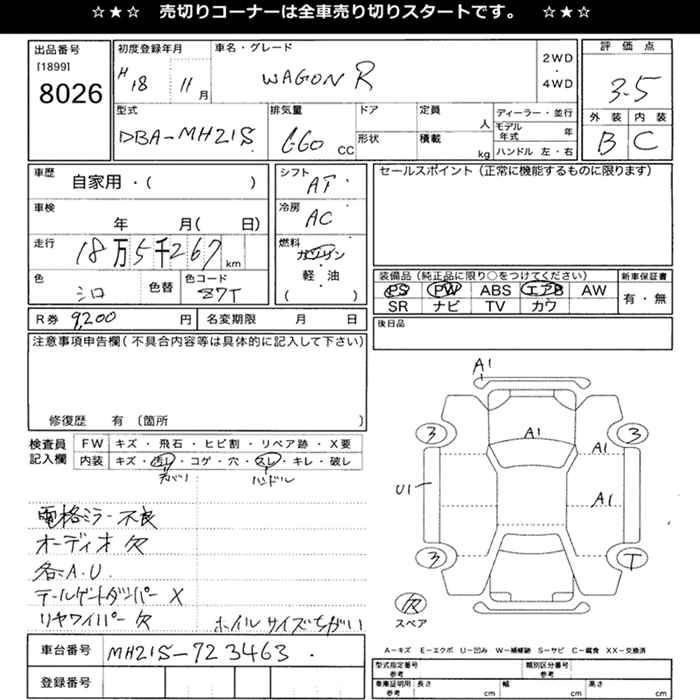 ☆★☆ 売切りコーナーは全車売り切りスタートです。 ☆★☆
出品番号
[1899]
8026
初度登録年月
H18 11月
車名・グレード
WAGON R
2WD
・
4WD
評価点
3.5
外装 内装
B C
型式
DBA-MH21S
排気量
660 CC
ドア
形状
定員
人
積載
kg
ディーラー・並行
モデル年式 年
ハンドル 左・右
車歴
自家用・( )
車検
年 月( 日)
走行
18万5千267 km
色
シロ
色替
色コード
87T
シフト
AT
冷房
AC
燃料
ガソリン
軽・油
( )
セールスポイント(正常に機能するものに限ります)
装備品(純正品に限り○をつけてください)
PS PW ABS エアB AW
SR ナビ TV カワ
新車保証書
有・無
後日品
R券 9,200 円
名変期限 月 日
注意事項申告欄(不具合内容等は具体的に記入して下さい)
修復歴 有 〔箇所 〕
検査員記入欄
FW キズ・飛石・ヒビ割・リペア跡・X要
内装 キズ・汚レ・コゲ・穴・スレ・キレ・破レ
ハンドル
電格ミラー不良
オーディオ欠
各A.U
テールゲートダンパー X
リヤワイパー欠 ホイルサイズちがい
A1
3 A1 3
A1
U1
A1
3 T
欠
スペア
A-キズ E-エクボ U-凹み W-補修跡 S-サビ C-腐食 XX-交換済
車台番号
MH21S-923463
登録番号
型式指定番号
参考
類別区分番号
参考
車庫証明用
参考
長さ cm
幅 cm
高さ cm